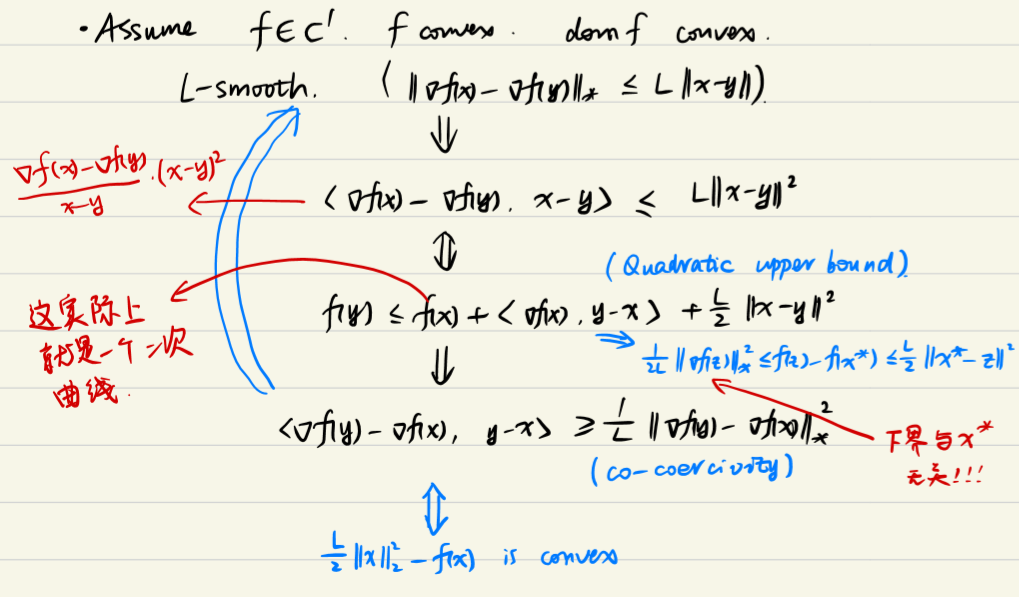 • Assume f∈C¹. f convex. dom f convex.
L-smooth. (‖∇f(x)-∇f(y)‖_* ≤ L‖x-y‖).
⇓
(∇f(x)-∇f(y))/(x-y)·(x-y)²
<∇f(x)-∇f(y), x-y> ≤ L‖x-y‖²
⇕
(Quadratic upper bound)
f(y) ≤ f(x)+<∇f(x), y-x> + L/2 ‖x-y‖²
这实际上
就是一个二次
曲线.
⇒ 1/2L ‖∇f(z)‖_*² ≤ f(z)-f(x*) ≤ L/2 ‖x*-z‖²
⇓
<∇f(y)-∇f(x), y-x> ≥ 1/L ‖∇f(y)-∇f(x)‖_*²
(co-coercivity)
下界与x*
无关!!!
⇕
L/2 ‖x‖₂² - f(x) is convex